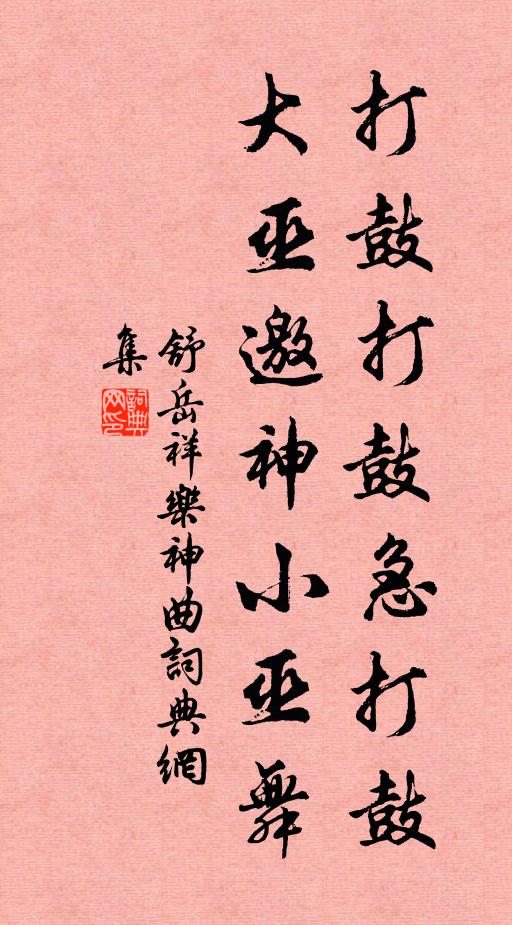 打鼓打鼓急打鼓
大巫邀神小巫舞
舒岳祥樂神曲詞典網
集
詞典
网印